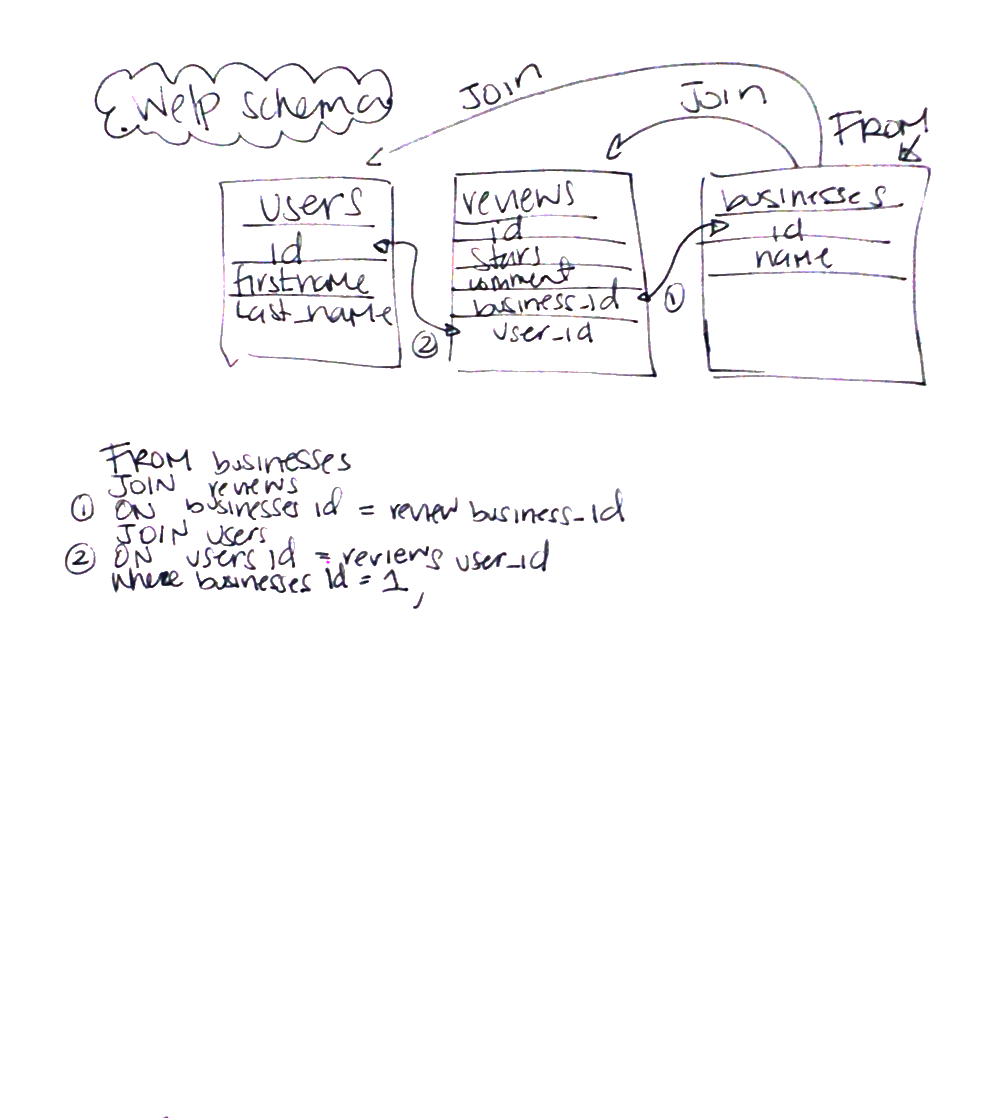 Welp schema
Join
Join
FROM
users
id
firstname
Last_name
reviews
id
stars
comment
business_id
user_id
businesses
id
name
①
②
FROM businesses
JOIN reviews
① ON businesses id = review business_id
JOIN users
② ON users id = reviews user_id
where businesses id = 1,